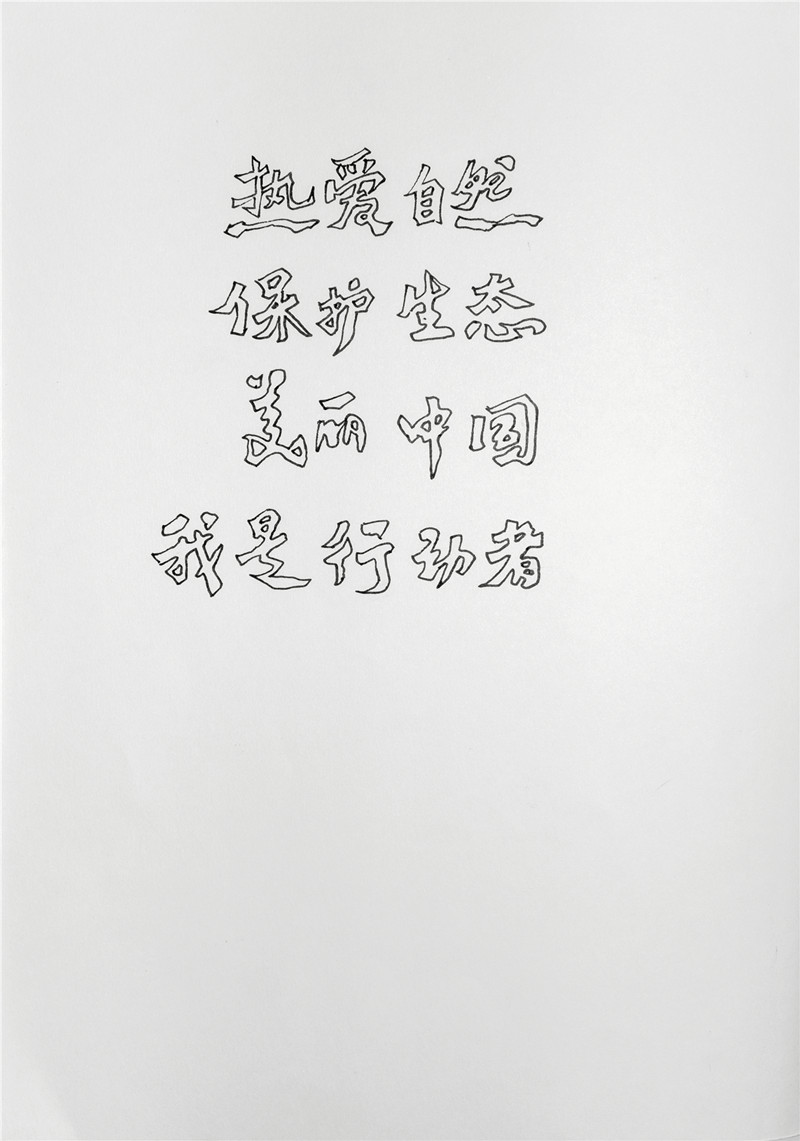 热爱自然
保护生态
美丽中国
我是行动者